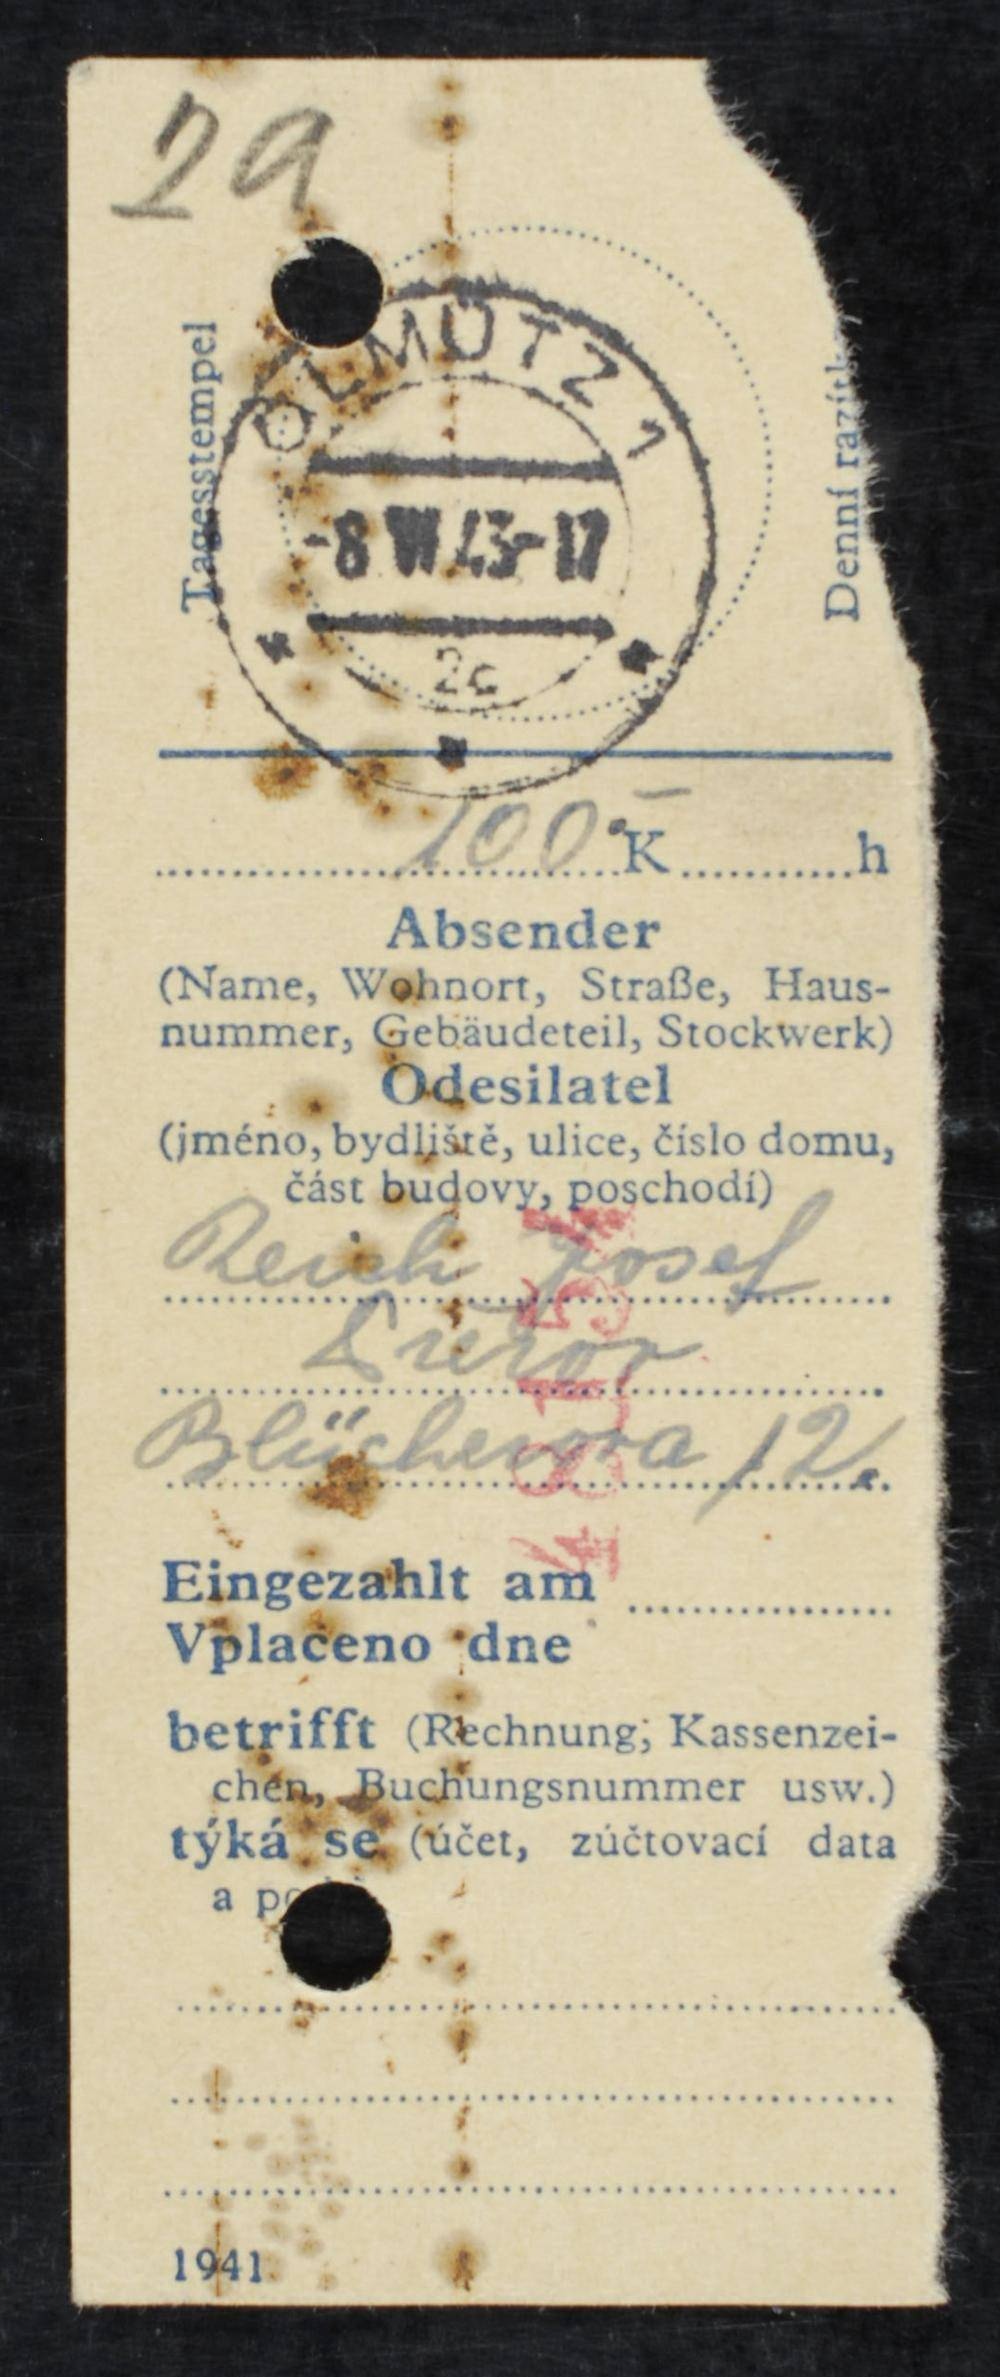 2a
Tagesstempel
Denní razít
OLMÜTZ 1
-8 VI 43-17
2c
100.- K h
Absender
(Name, Wohnort, Straße, Haus-
nummer, Gebäudeteil, Stockwerk)
Odesilatel
(jméno, bydliště, ulice, číslo domu,
část budovy, poschodí)
Reich Josef
Blücherova 12.
4815
Eingezahlt am
Vplaceno dne
betrifft (Rechnung, Kassenzei-
chen, Buchungsnummer usw.)
týká se (účet, zúčtovací data
a po
1941